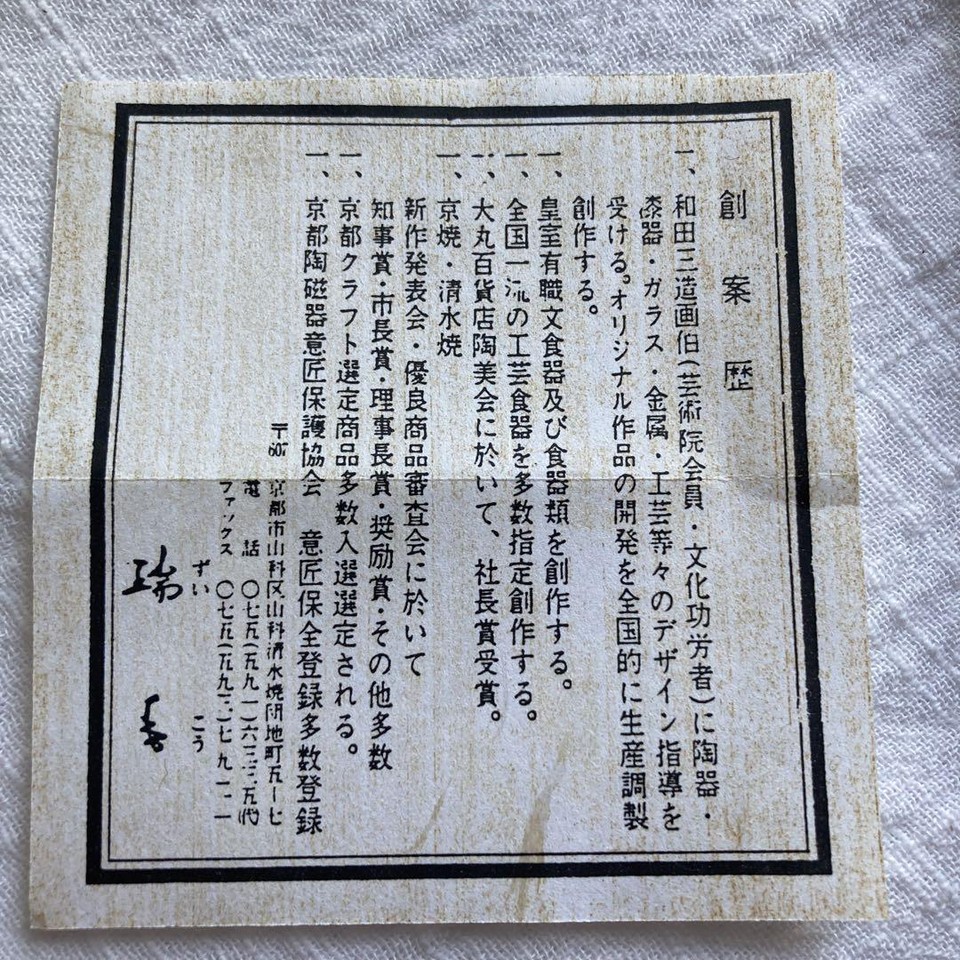 創案歴
一、和田三造画伯(芸術院会員・文化功労者)に陶器・
漆器・ガラス・金属・工芸等々のデザイン指導を
受ける。オリジナル作品の開発を全国的に生産調製
創作する。
一、皇室有職文食器及び食器類を創作する。
一、全国一流の工芸食器を多数指定創作する。
一、大丸百貨店陶美会に於いて、社長賞受賞。
一、京焼・清水焼
新作発表会・優良商品審査会に於いて
知事賞・市長賞・理事長賞・奨励賞・その他多数
一、京都クラフト選定商品多数入選選定される。
一、京都陶磁器意匠保護協会 意匠保全登録多数登録
〒607 京都市山科区山科清水焼団地町五ー七
電話 〇七五(五九一)六三三五代
ファックス 〇七五(五九二)七九一一
ずい こう
瑞